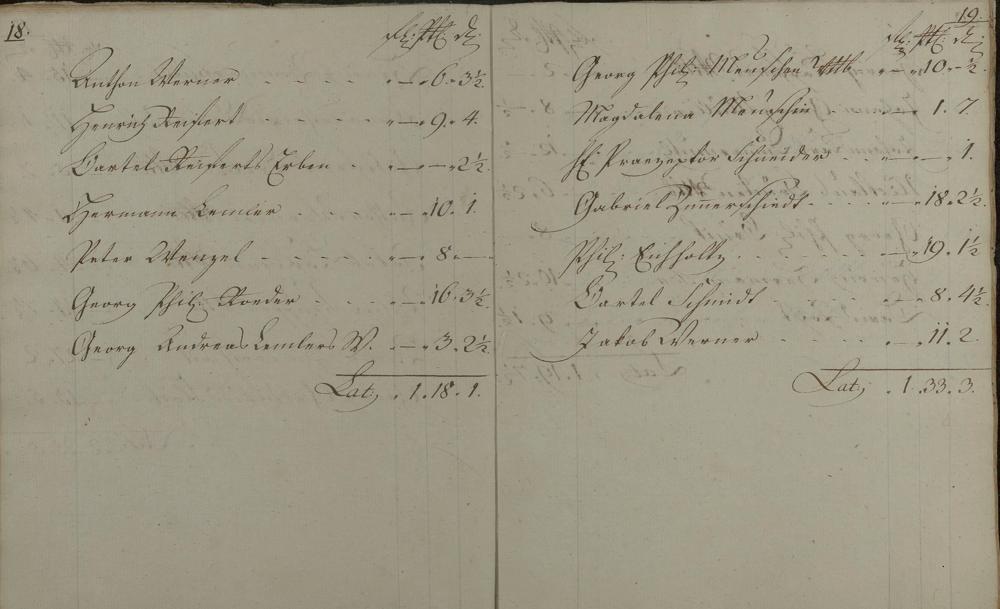 18.
fl: Xtr: d:
Anthon Werner - - - - . - 6. 3½.
Henrich Reifert - - - - . - 9. 4.
Bartel Reiferts Erben - . - . - 2½
Hermann Lemler - - - - . - 10. 1.
Peter Wenzel - - - - - . - 8. -
Georg Phil: Roeder - - - . - 16. 3½
Georg Andreas Lemlers W. - . - 3. 2½
Lat: . 1. 18. 1.
19.
fl: Xtr: d:
Georg Phil: Meuschen . - 10. - ½
Magdalena Meuschin - 1. 7.
H: Praezeptor Schneider . . . - . - . 1.
Gabriel Zimerschiedt - - - . - 18. 2½.
Phil: Eichholtz - - - - - . - 19. 1½
Bartel Schmidt - - - - . - 8. 4½
Jakob Werner - - - - . - 11. 2.
Lat: . 1. 33. 3.